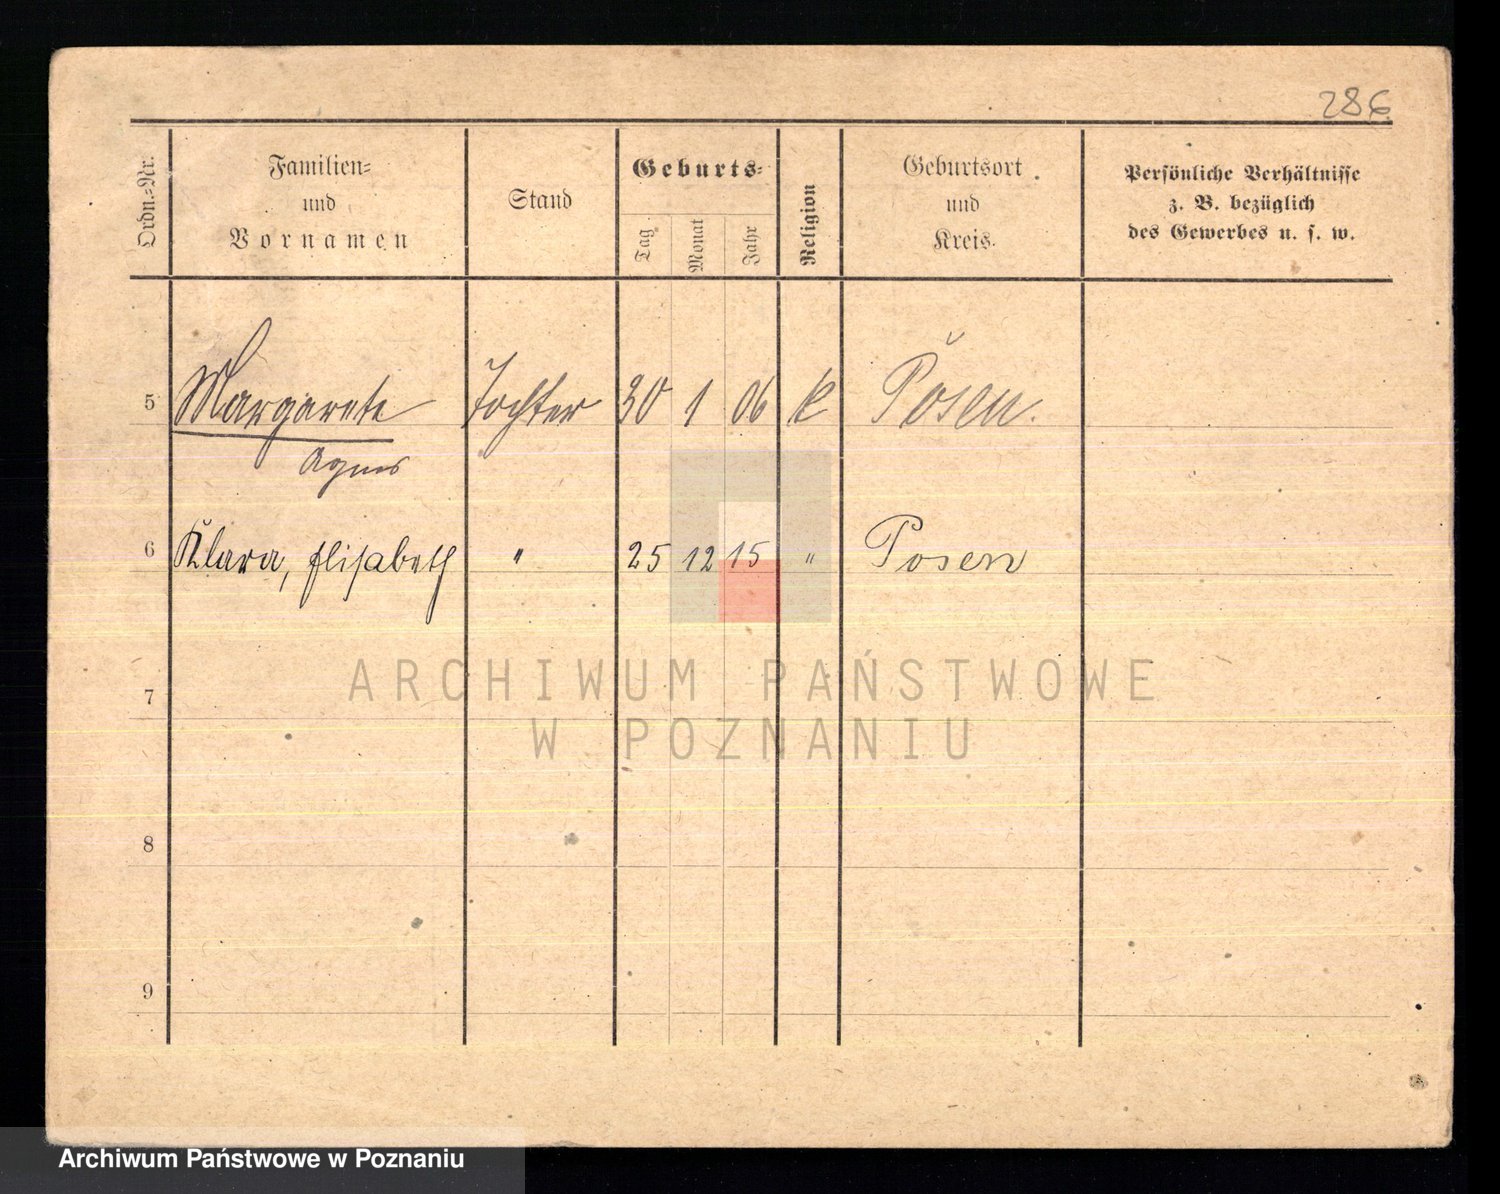 286
Ordn.-Nr.
Familien-
und
Vornamen
Stand
Geburts-
Tag
Monat
Jahr
Religion
Geburtsort
und
Kreis.
Persönliche Verhältnisse
z. B. bezüglich
des Gewerbes u. s. w.
5 Margarete Tochter 30 1 06 k Posen.
Agnes
6 Klara, Elisabeth " 25 12 15 " Posen
7
8
9
ARCHIWUM PAŃSTWOWE
W POZNANIU
Archiwum Państwowe w Poznaniu